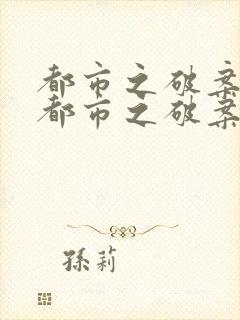 都市之破案
都市之破案
孫莉